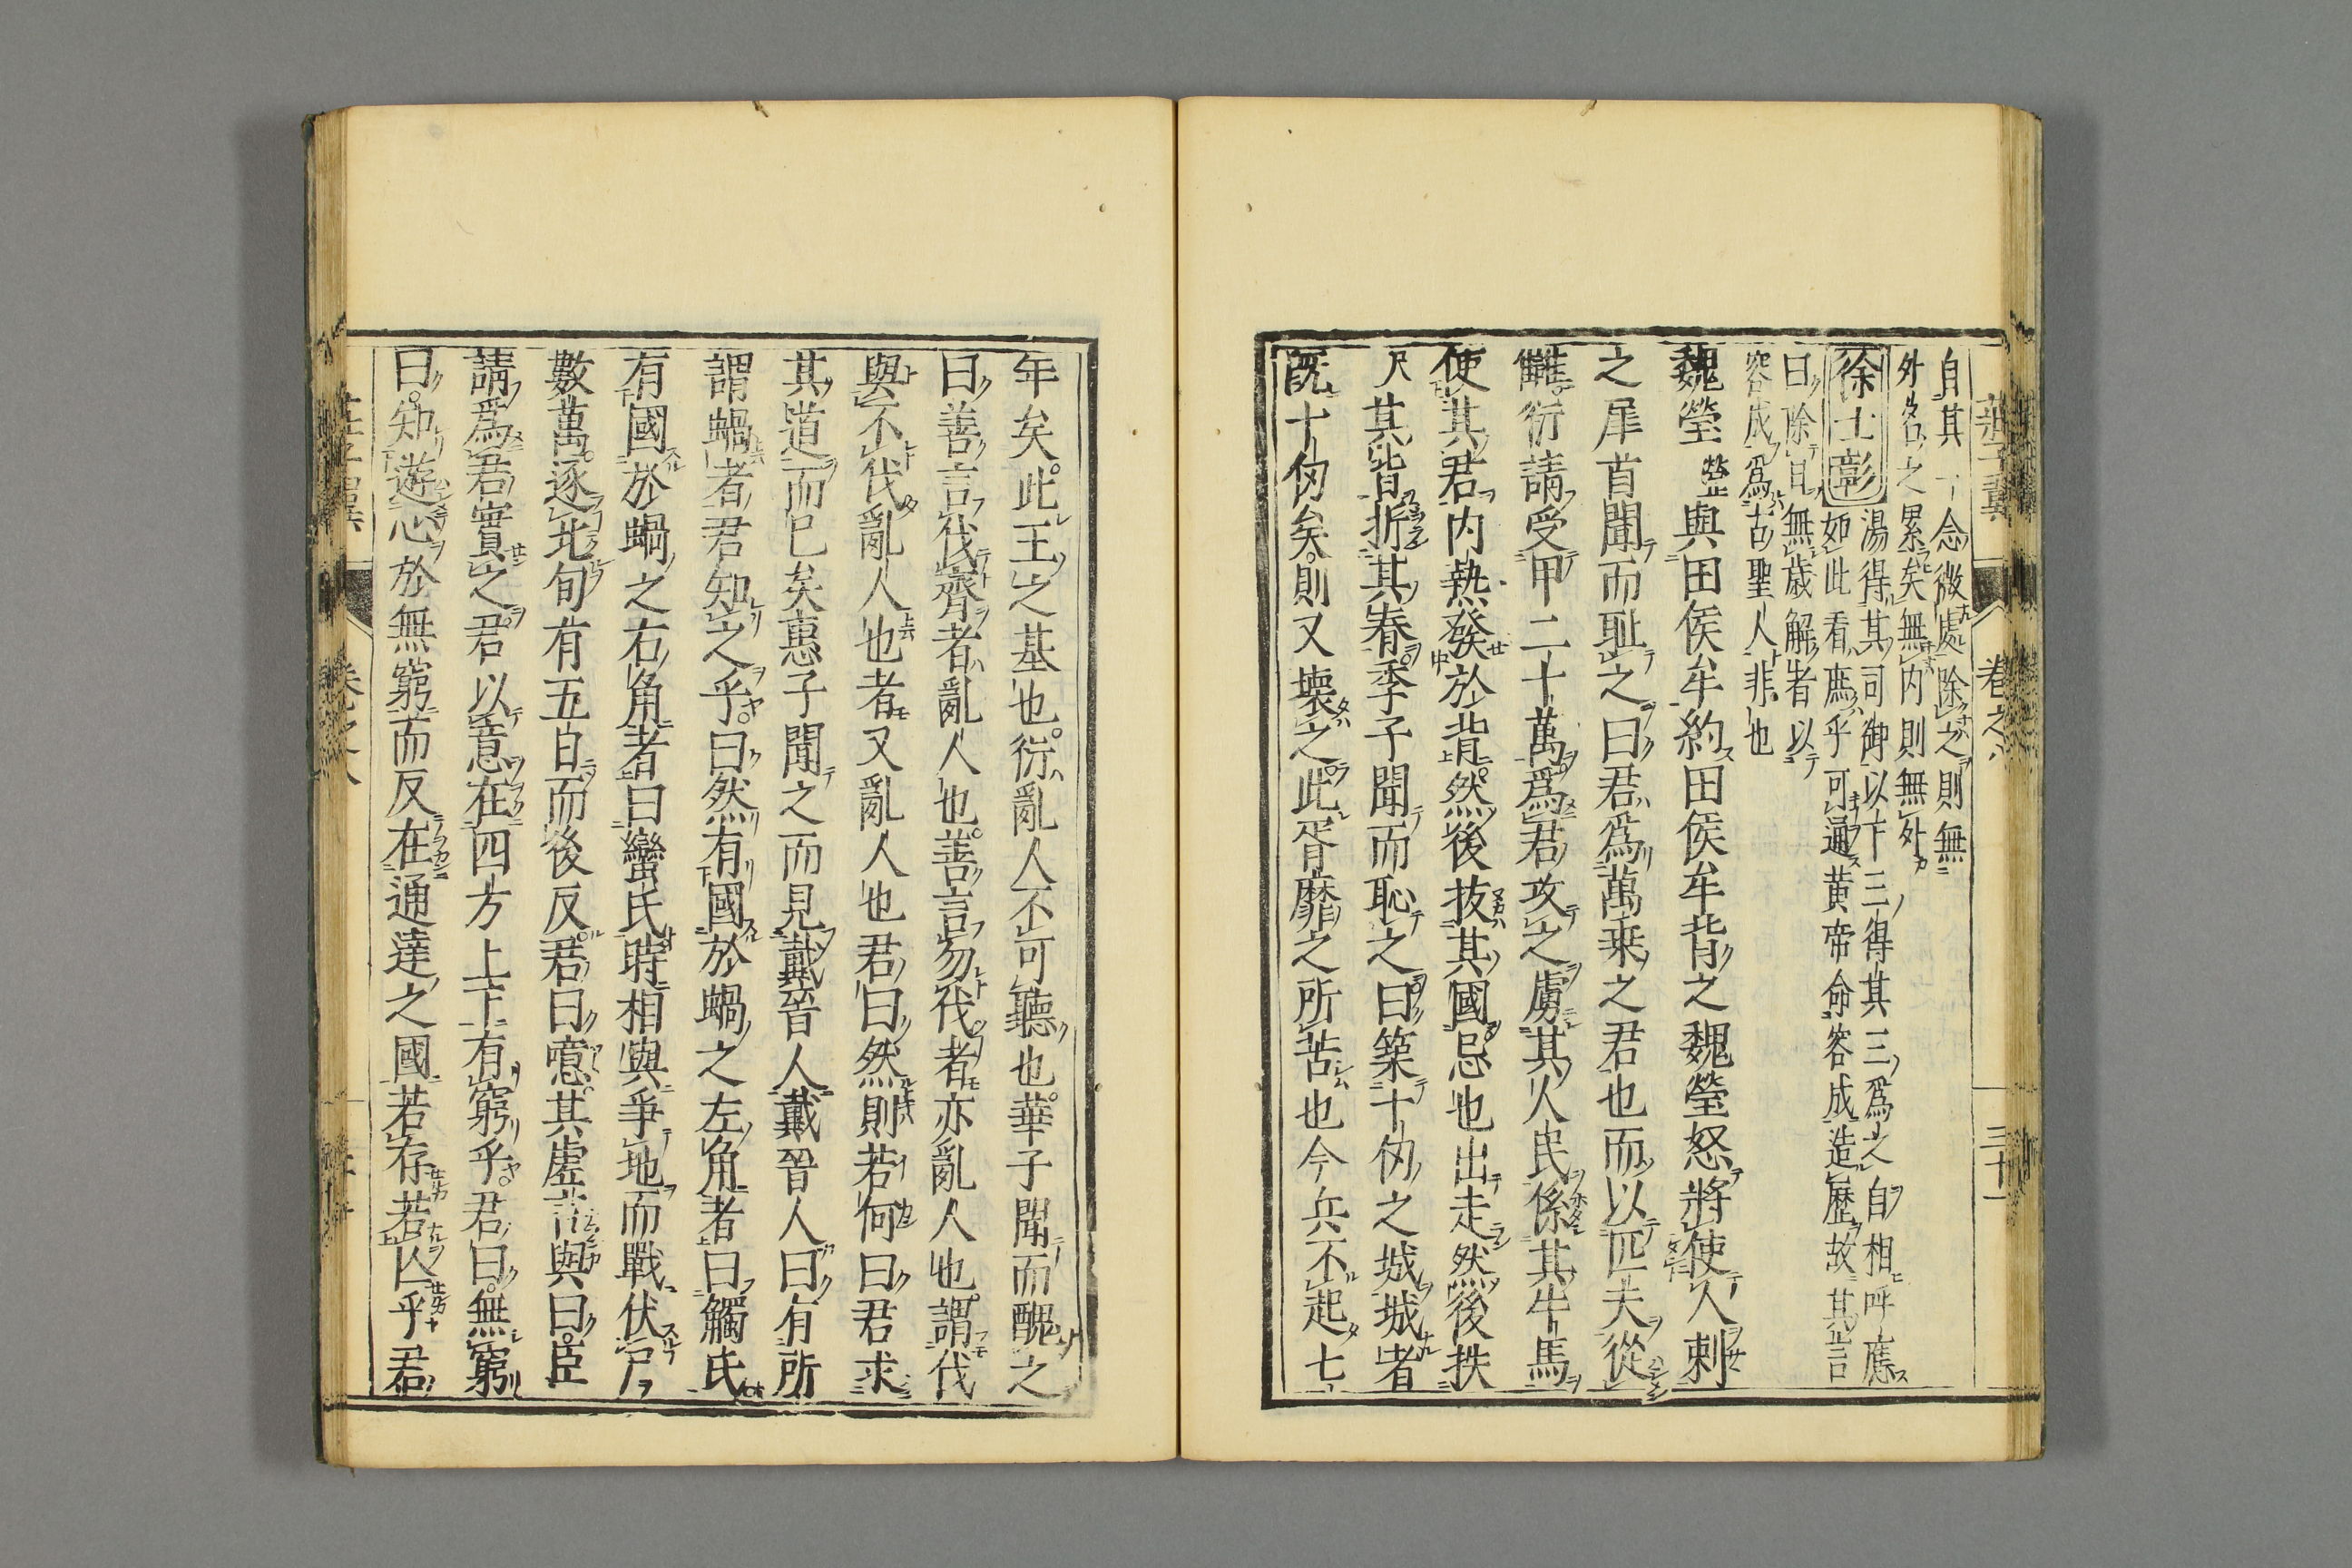 自其一念微處除之則無
外名之累矣無內則無外
徐士彰
湯得其司御以下三得其三爲之自相呼應
如此看爲乎可通黃帝命容成造歷故其言
曰除日無歲解者以
容成爲古聖人非也
魏瑩
瑩
與田侯牟約田侯牟背之魏瑩怒將使人刺
之犀首聞而耻之曰君爲萬乘之君也而以匹夫從
讎衍請受甲二十萬爲君攻之虜其人民係其牛馬
使其君内熱發於背然後拔其國忌也出走然後抶
其背折其脊季子聞而恥之曰築十仞之城城者
既十仞矣則又壞之此胥靡之所苦也今兵不起七
年矣此王之基也衍亂人不可聽也華子聞而醜之
曰善言伐齊者亂人也善言勿伐者亦亂人也謂伐
與不伐亂人也者又亂人也君曰然則若何曰君求
其道而已矣惠子聞之而見戴晉人戴晉人曰有所
謂蝸者君知之乎曰然有國於蝸之左角者曰觸氏
有國於蝸之右角者曰蠻氏時相與爭地而戰伏尸
數萬逐北旬有五日而後反君曰噫其虛言與曰臣
請爲君實之君以意在四方上下有窮乎君曰無窮
曰知遊心於無窮而反在通達之國若存若亡乎君
莊子翼
卷之八
三十一